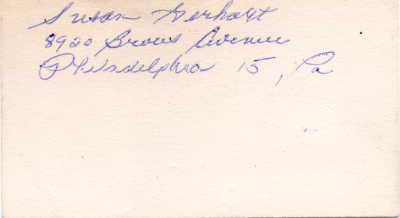 Susan Gerhart
8920 Brous Avenue
Philadelphia 15, Pa